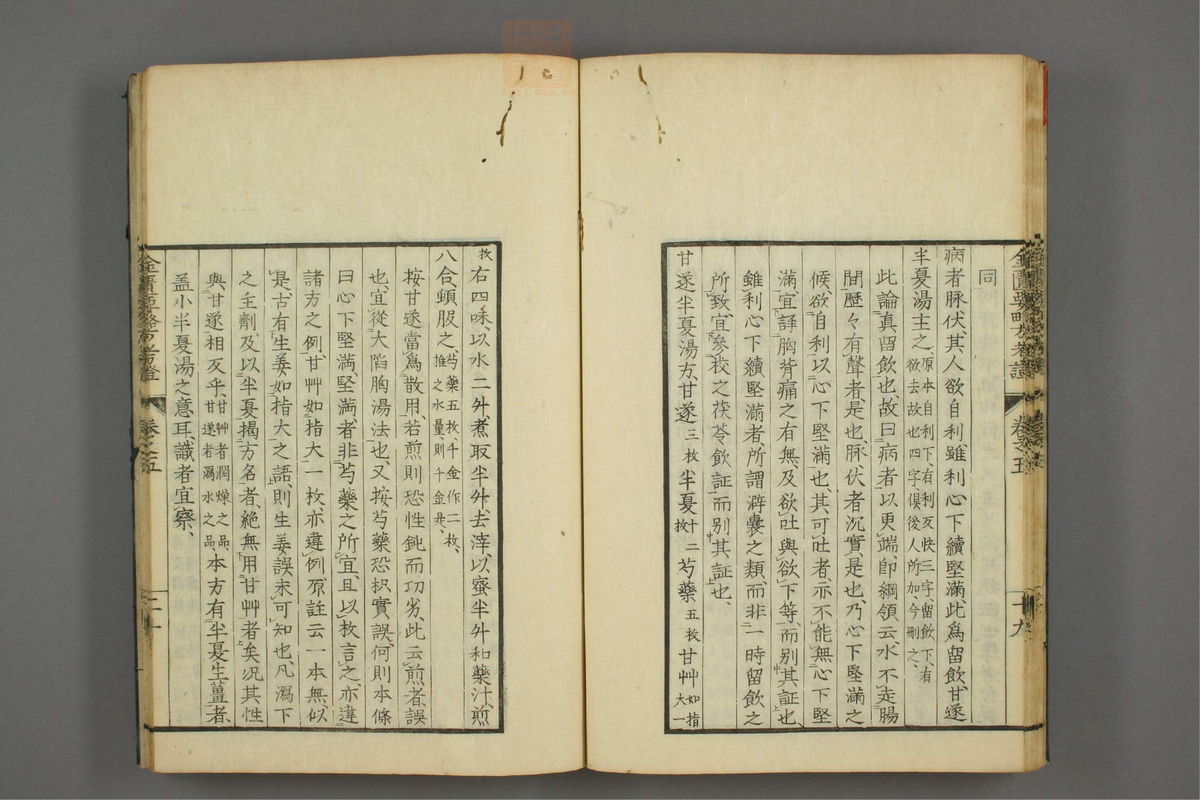 同
病者脉伏、其人欲自利、雖利心下續堅滿、此爲留飲、甘遂
半夏湯主之、原本自利下、有利反快三字、留飲下有欲去故也四字、俱後人所加、今刪之、
此論眞留飲也、故曰病者以更端、卽綱領云水不走腸
間歷々有聲者、是也、脉伏者沉實是也、乃心下堅滿之
候、欲自利以心下堅滿也、其可吐者亦不能無心下堅
滿、宜詳胸背痛之有無、及欲吐與欲下等而別其証也、
雖利心下續堅滿者、所謂澼囊之類、而非一時留飲之
所致、宜參攷之茯苓飲証而別其証也、
甘遂半夏湯方、甘遂三枚半夏十二枚芍藥五枚甘艸如指大一
枚右四味、以水二升、煮取半升、去滓、以蜜半升和藥汁、煎
八合、頓服之、芍藥五枚、千金作二枚、推之水量、則千金是、
按甘遂當爲散用、若煎則恐性鈍而功劣、此云煎者、誤
也、宜從大陷胸湯法也、又按芍藥恐枳實誤、何則本條
曰心下堅滿、堅滿者非芍藥之所宜、且以枚言之、亦違
諸方之例、甘艸如指大一枚、亦違例、原註云一本無、似
是、古有生姜如指大之語、則生姜誤未可知也、凡瀉下
之主劑及以半夏揭方名者、絕無用甘艸者矣、况其性
與甘遂相反乎、甘艸者潤燥之品、甘遂者瀉水之品、本方有半夏生薑者、
盖小半夏湯之意耳、識者宜察、
金匱要略方考證
卷之五
十九